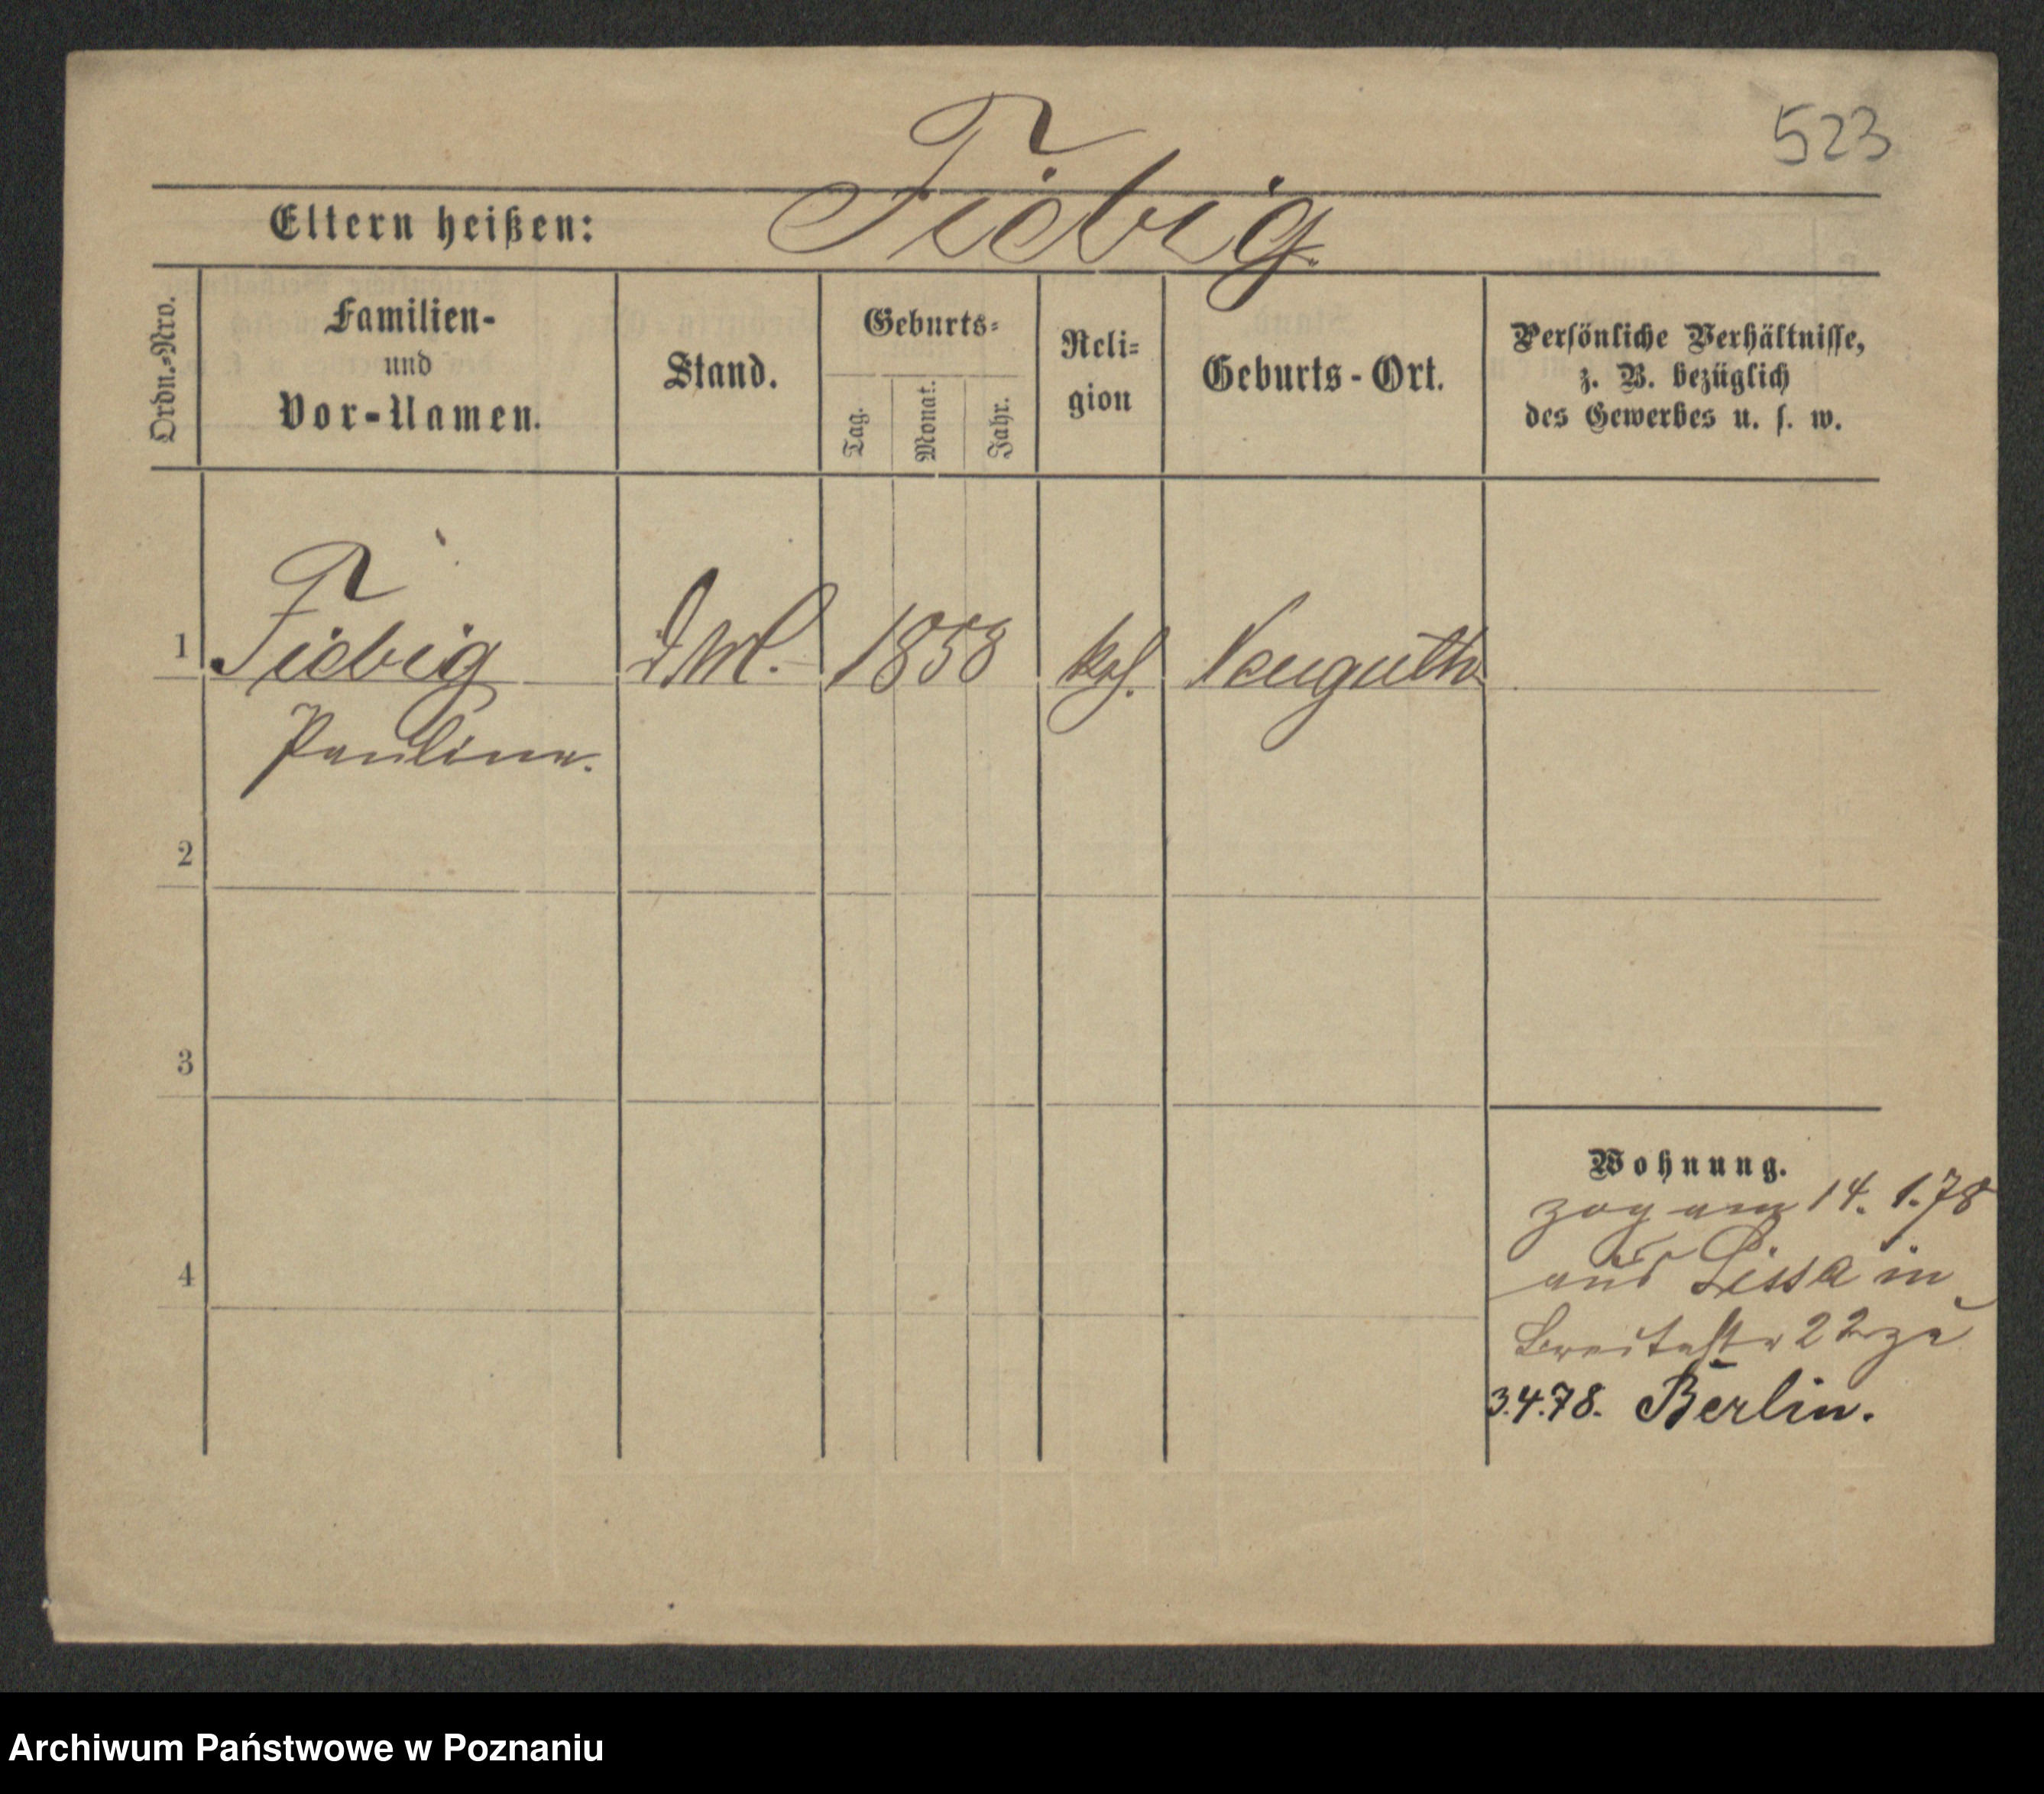 523
Fiebig
Eltern heißen:
Ordn.-Nro.
Familien-
und
Vor-Namen.
Stand.
Geburts-
Tag.
Monat.
Jahr.
Reli-
gion
Geburts-Ort.
Persönliche Verhältnisse,
z. B. bezüglich
des Gewerbes u. s. w.
1
Fiebig
1858
Neuguth
Pauline.
2
3
4
Wohnung.
zog am 14. 1. 78
aus Lissa in
Breitestr 22 zu
3.4.78. Berlin.
Archiwum Państwowe w Poznaniu